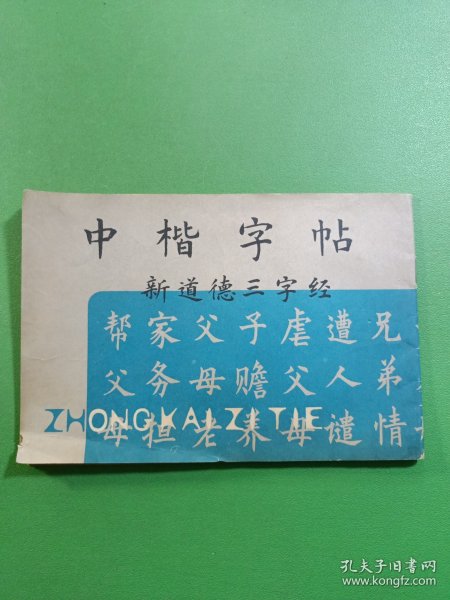 中楷字帖
新道德三字经
帮家父子虐遭兄
父务母赡父人弟
母担老养母谴情
ZHONGKAI ZI TIE
孔夫子旧书网
www.kongfz.com